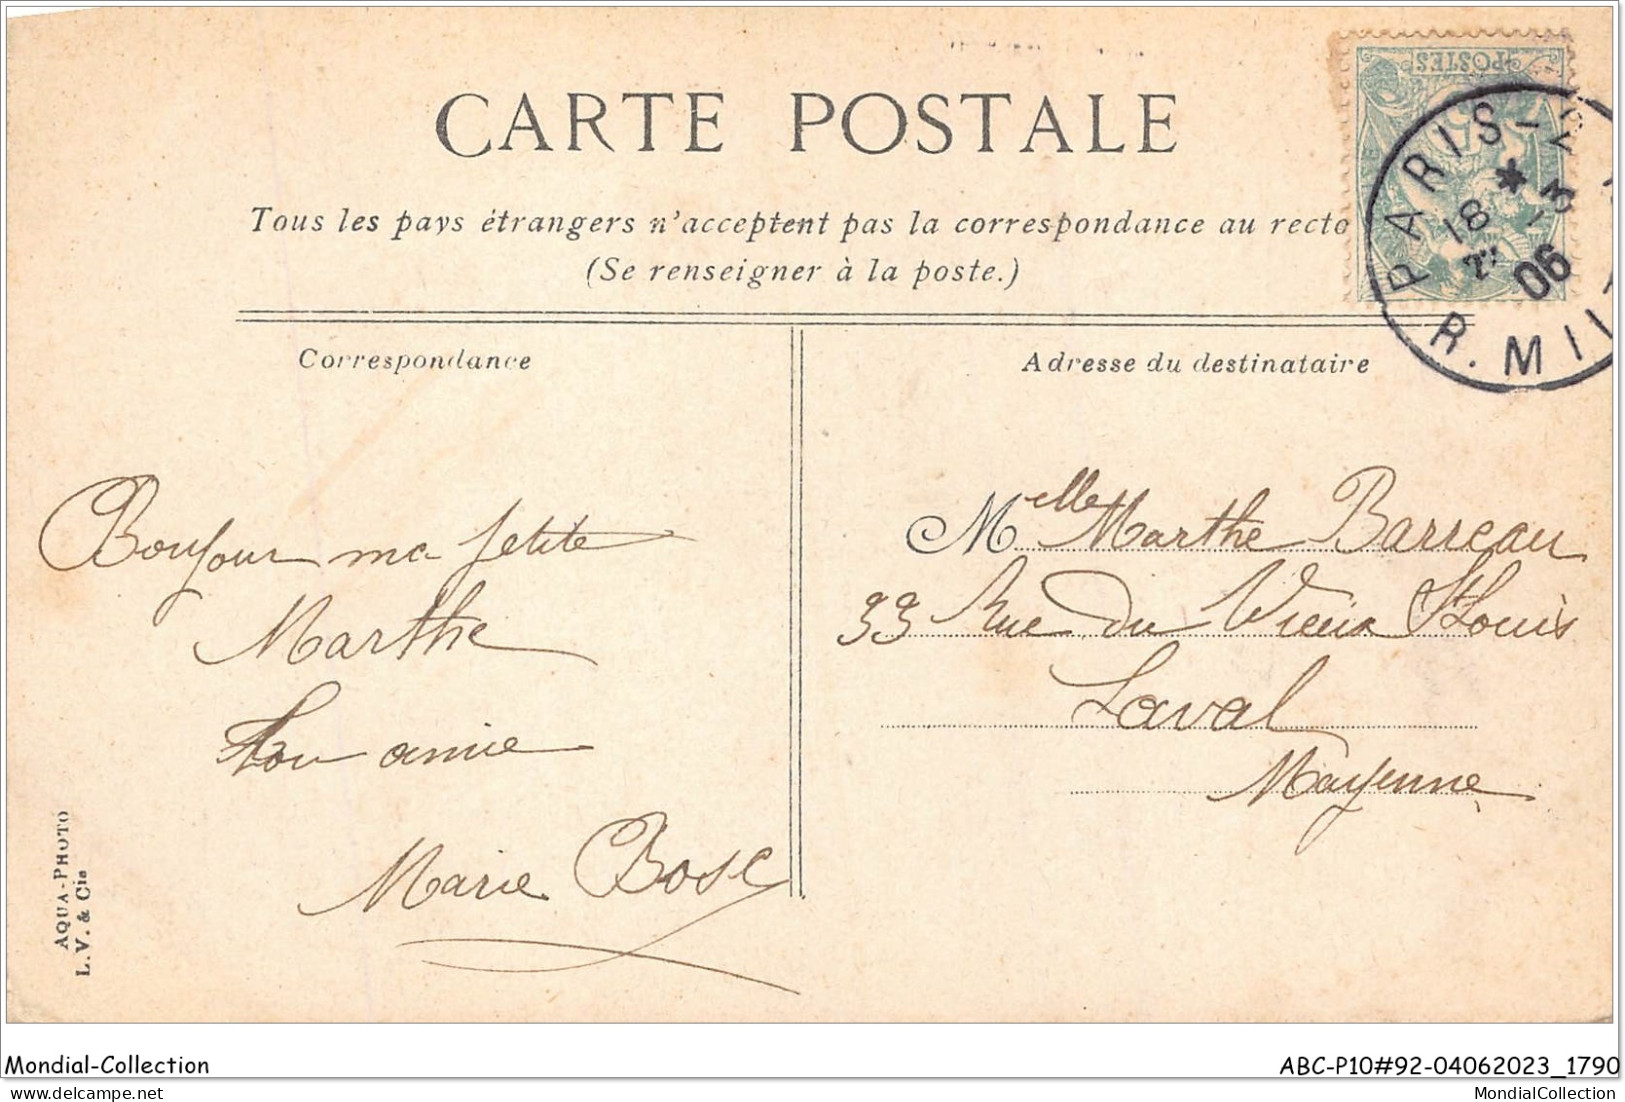 CARTE POSTALE
Tous les pays étrangers n'acceptent pas la correspondance au recto
(Se renseigner à la poste.)
Correspondance
Adresse du destinataire
POSTES
PARIS
18 -3
06
R. MI
Bonjour ma petite
Marthe
Ton amie
Marie Bosc
Melle Marthe Barreau
33 Rue du Vieux St Louis
Laval
Mayenne
AQUA-PHOTO
L. V. & Cie
Mondial-Collection
ABC-P10#92-04062023_1790
MondialCollection
MondialCollection.net